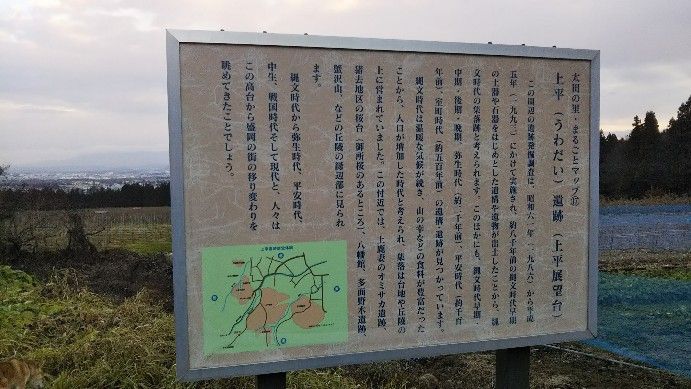 太田の里・まるごとマップ⑰
上平（うわだい）遺跡（上平展望台）
この周辺の遺跡発掘調査は、昭和六一年（一九八六）から平成
五年（一九九三）にかけて実施され、約八千年前の縄文時代早期
の土器や石器をはじめとした遺構や遺物が出土したことから、縄
文時代の集落跡と考えられます。このほかにも、縄文時代早期・
中期・後期・晩期、弥生時代（約二千年前）、平安時代（約千百
年前）、室町時代（約五百年前）の遺構・遺跡が見つかっています。
縄文時代は温暖な気候が続き、山の幸などの食料が豊富だった
ことから、人口が増加した時代と考えられ、集落は台地や丘陵の
上に営まれていました。この付近では、上鹿妻のオミサカ遺跡、
猪去地区の桜台（御所桜のあるところ）、八幡館、多面野木遺跡、
蟹沢山、などの丘陵の縁辺部に見られ
ます。
縄文時代から弥生時代、平安時代、
中生、戦国時代そして現代と、人々は
この高台から盛岡の街の移り変わりを
眺めてきたことでしょう。